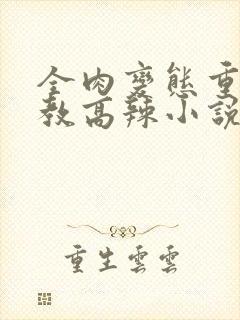 全肉變態重
教高辣小說
重生雲雲